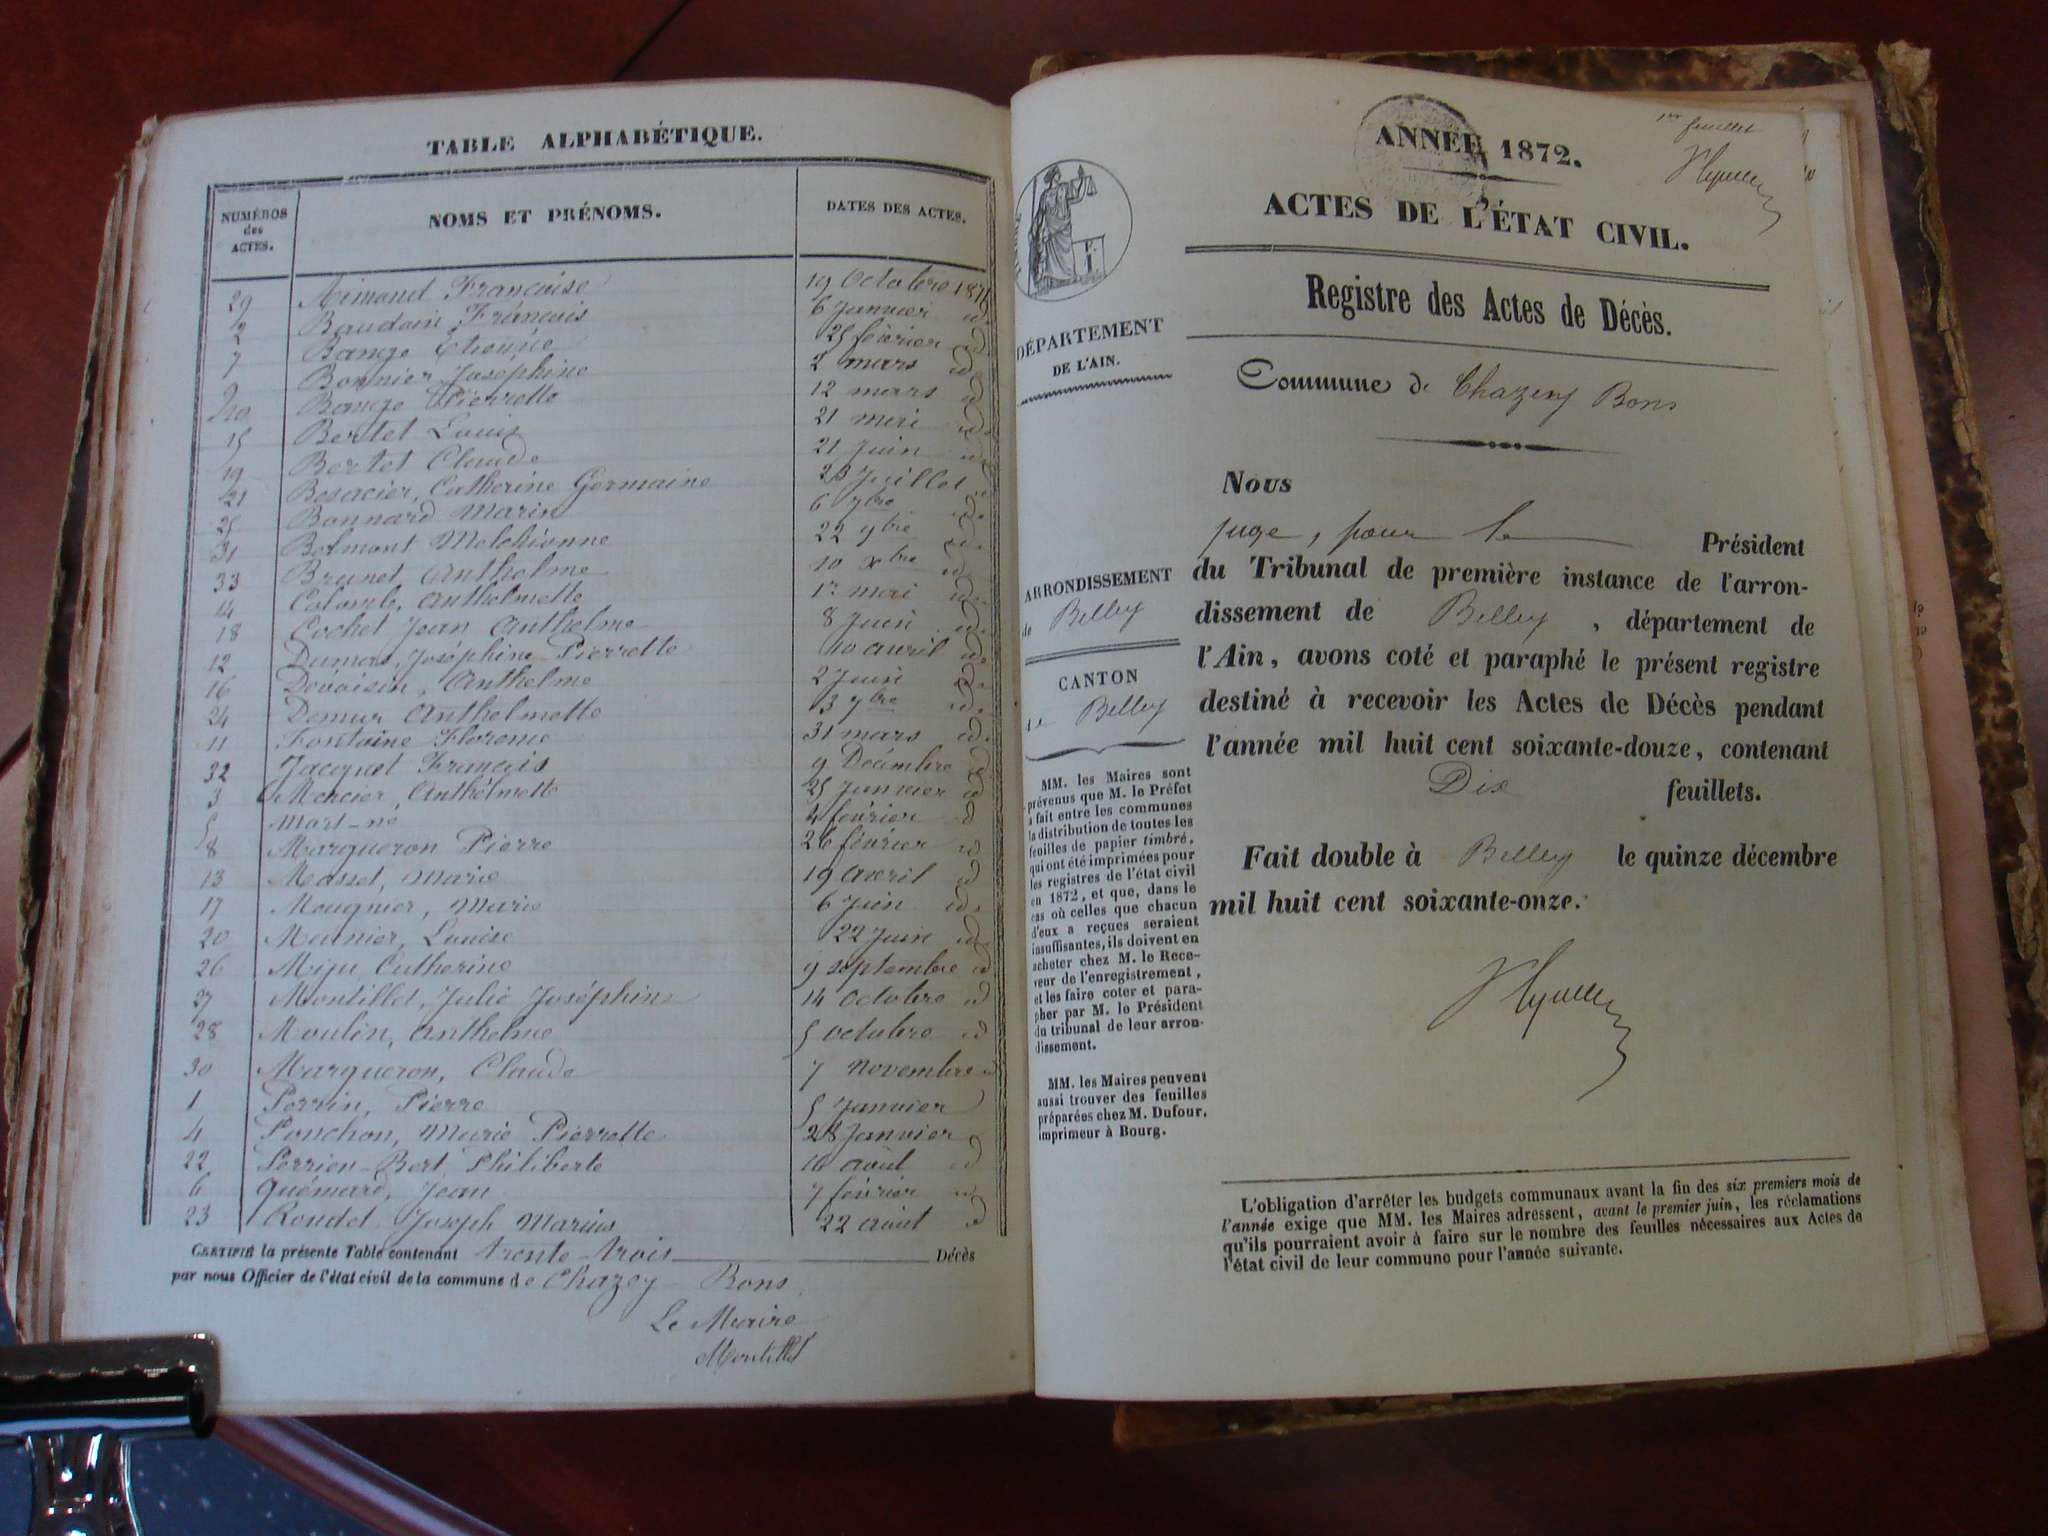 TABLE ALPHABÉTIQUE.
NUMÉROS des ACTES. NOMS ET PRÉNOMS. DATES DES ACTES.
29 Aimand Françoise 19 Octobre 1871
2 Baudoin François 6 Janvier id.
7 Barge Étienne 25 février id
Bonnier Joséphine 2 mars id
10 Barge Pierrette 12 mars id
15 Bertet Louis 21 mai id.
19 Bertet Claude 21 Juin id
21 Besacier, Catherine Germaine 28 Juillet id
25 Bonnard Marin 6 7bre id.
31 Belmont Melchionne 22 9bre id.
33 Brunet, Anthelme 10 xbre id
14 Colomb, Anthelmette 1er mai id.
18 Cochet Jean Anthelme 8 Juin id.
12 Dumas, Joséphine Pierrette 10 avril id
16 Devoisin, Anthelme 2 Juin id.
24 Demur Anthelmette 3 7bre id.
11 Fontaine Florence 31 mars id.
32 Jacquet François 9 Décembre id
3 Mercier, Anthelmette 25 Janvier id
5 Mort-né 4 février id
8 Margueron Pierre 26 février id
13 Masset, Marie 19 avril id
17 Meugnier, Marie 6 Juin id.
20 Meunier, Louise 22 Juin id.
26 Catherine 9 septembre id
27 Montillet, Julie Joséphine 14 Octobre id
28 Moulin, Anthelme 5 octobre id
30 Margueron, Claude 7 novembre id
1 Perrin, Pierre 5 Janvier
4 Ponchon, Marie Pierrette 28 Janvier id
22 Perrier-Bert, Philiberte 10 août id
6 Quémard, Jean 7 février id
23 Rondet Joseph Marius 22 août id
CERTIFIÉ la présente Table contenant trente-trois Décès
par nous Officier de l'état civil de la commune de Chazey-Bons
Le Maire
Montillet
1er feuillet
ANNÉE 1872.
ACTES DE L'ÉTAT CIVIL.
Registre des Actes de Décès.
DÉPARTEMENT
DE L'AIN.
Commune de Chazey Bons
Nous
juge, pour le Président
du Tribunal de première instance de l'arron-
dissement de Belley, département de
l'Ain, avons coté et paraphé le présent registre
destiné à recevoir les Actes de Décès pendant
l'année mil huit cent soixante-douze, contenant
Dix feuillets.
Fait double à Belley le quinze décembre
mil huit cent soixante-onze.
ARRONDISSEMENT
de Belley
CANTON
de Belley
MM. les Maires sont
prévenus que M. le Préfet
a fait entre les communes
la distribution de toutes les
feuilles de papier timbré,
qui ont été imprimées pour
les registres de l'état civil
en 1872, et que, dans le
cas où celles que chacun
d'eux a reçues seraient
insuffisantes, ils doivent en
acheter chez M. le Rece-
veur de l'enregistrement,
et les faire coter et para-
pher par M. le Président
du tribunal de leur arron-
dissement.
MM. les Maires peuvent
aussi trouver des feuilles
préparées chez M. Dufour,
imprimeur à Bourg.
L'obligation d'arrêter les budgets communaux avant la fin des six premiers mois de
l'année exige que MM. les Maires adressent, avant le premier juin, les réclamations
qu'ils pourraient avoir à faire sur le nombre des feuilles nécessaires aux Actes de
l'état civil de leur commune pour l'année suivante.